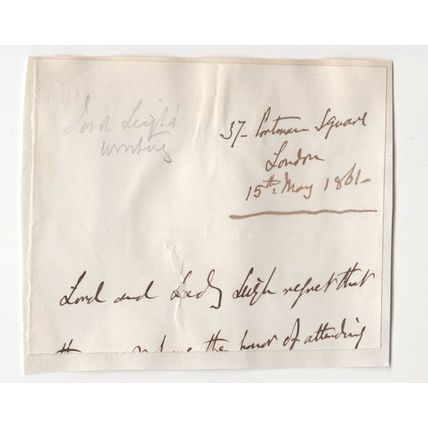 Lord Leigh's
writing
37 - Portman Square
London
15th May 1861 -
Lord and Lady Leigh regret that
the honor of attending